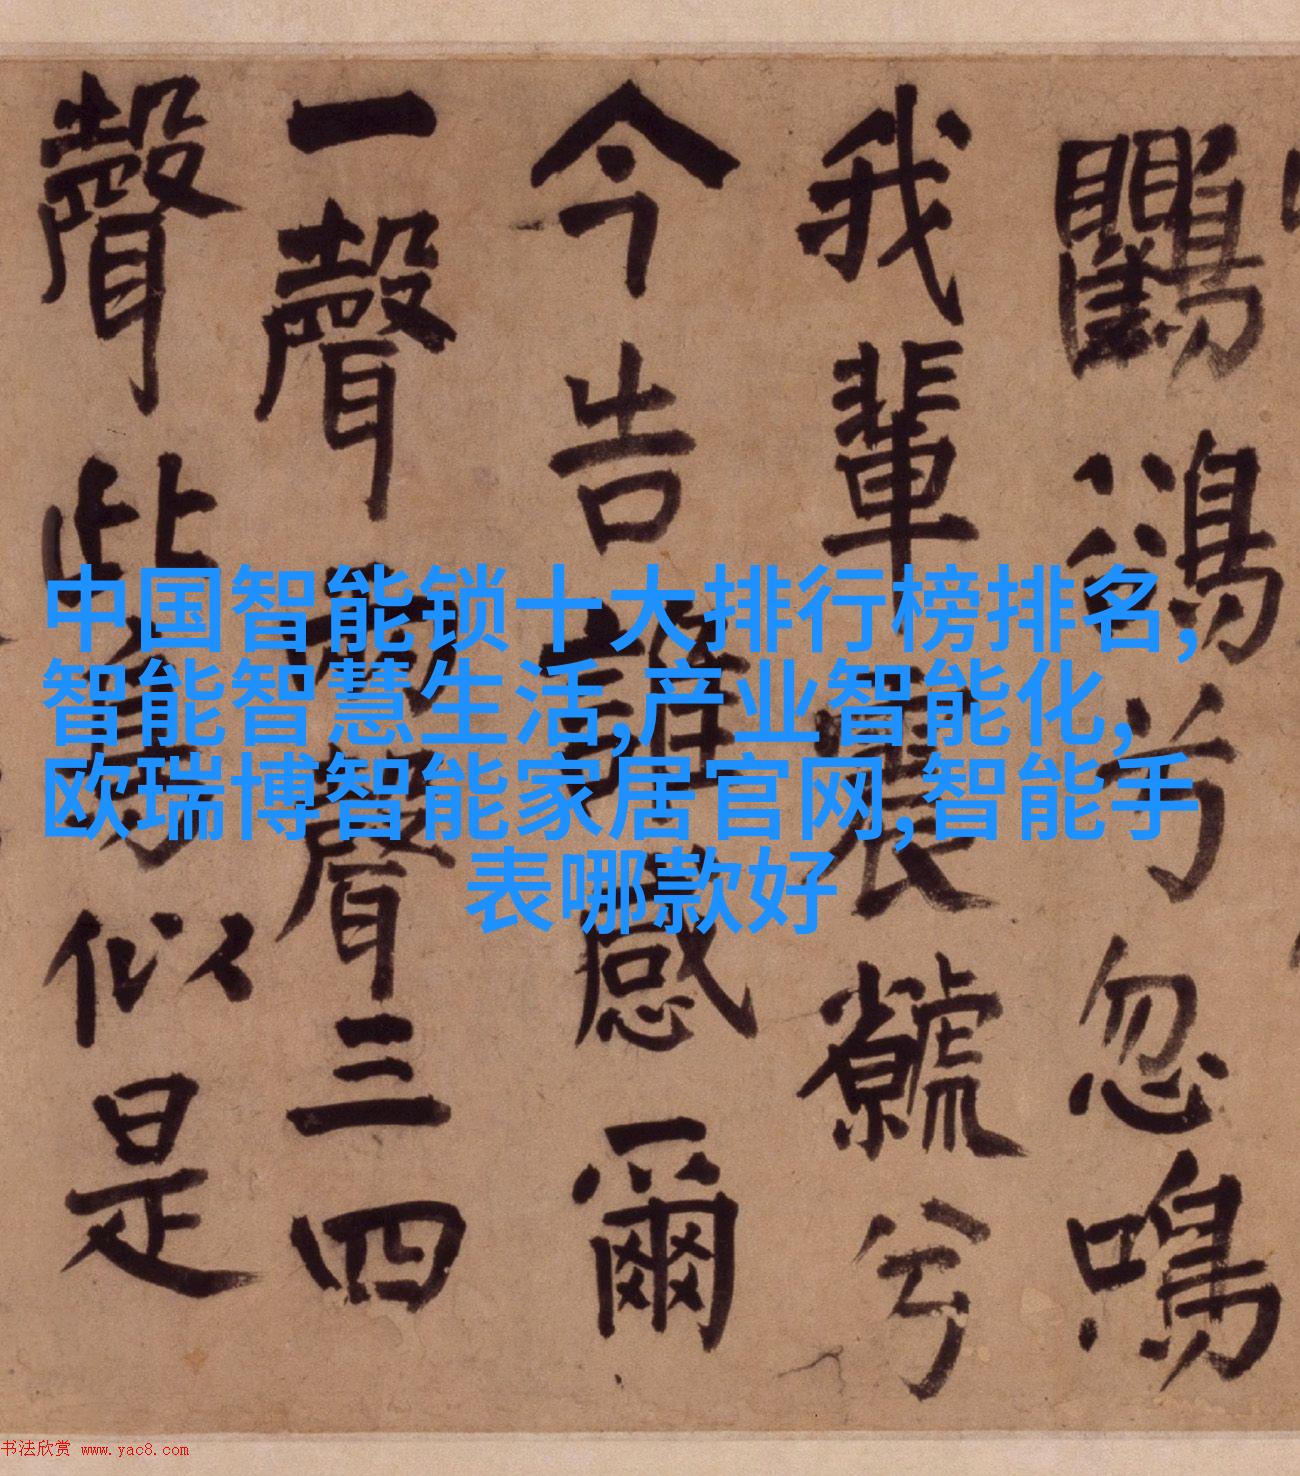 鸜鵒兮忽鳴
我輩兮
今告誰感爾
一聲兩聲三四
聲此鳥似是
中国智能锁十大排行榜排名,
智能智慧生活,产业智能化,
欧瑞博智能家居官网,智能手
表哪款好
书法欣赏 www.yac8.com